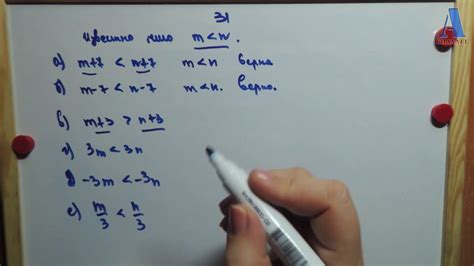 31
известно m < n.
а) m+7 < n+7 m < n верно
б) m-7 < n-7 m < n. верно.
в) m+3 > n+3
г) 3m < 3n
д) -3m < -3n
е) m/3 < n/3